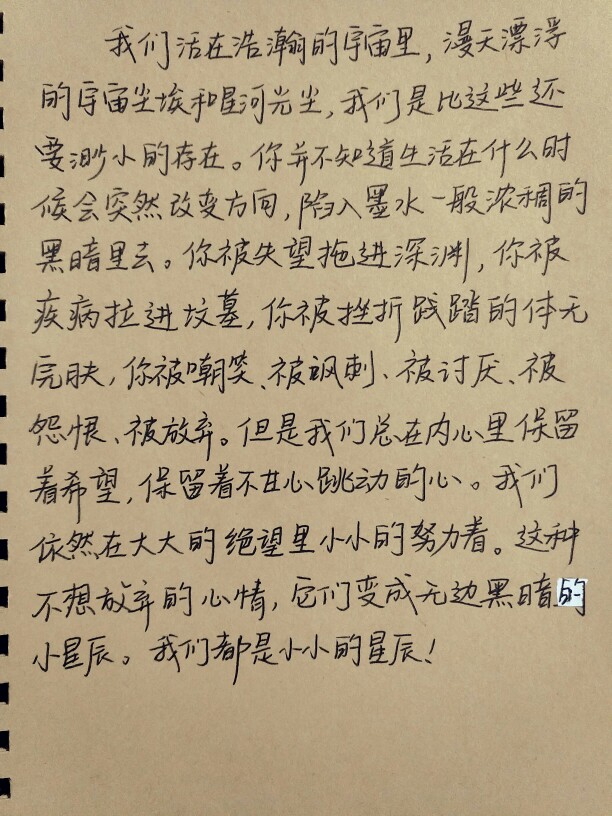 我们活在浩瀚的宇宙里，漫天漂浮
的宇宙尘埃和星河光尘，我们是比这些还
要渺小的存在。你并不知道生活在什么时
候会突然改变方向，陷入墨水一般浓稠的
黑暗里去。你被失望拖进深渊，你被
疾病拉进坟墓，你被挫折践踏的体无
完肤，你被嘲笑、被讽刺、被讨厌、被
怨恨、被放弃。但是我们总在内心里保留
着希望，保留着不甘心跳动的心。我们
依然在大大的绝望里小小的努力着。这种
不想放弃的心情，它们变成无边黑暗的
小星辰。我们都是小小的星辰！